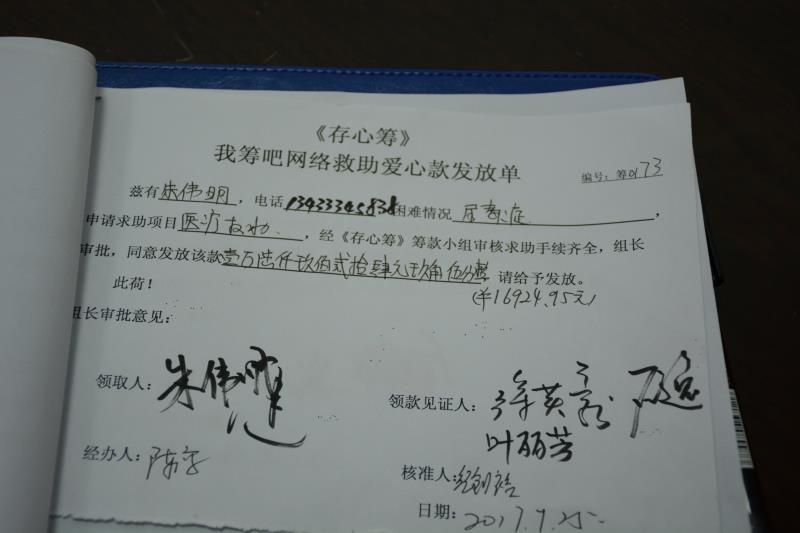 《存心筹》
我筹吧网络救助爱心款发放单
编号：筹0173
兹有朱伟明，电话13423345838困难情况尿毒症，
申请求助项目医疗救助，经《存心筹》筹款小组审核求助手续齐全，组长
审批，同意发放该款壹万陆仟玖佰贰拾肆元玖角伍分整请给予发放。
此荷！
(￥16924.95元)
组长审批意见：
领取人：朱伟
领款见证人：英
叶丽芳
经办人：陈
核准人：
日期：2017.7.25